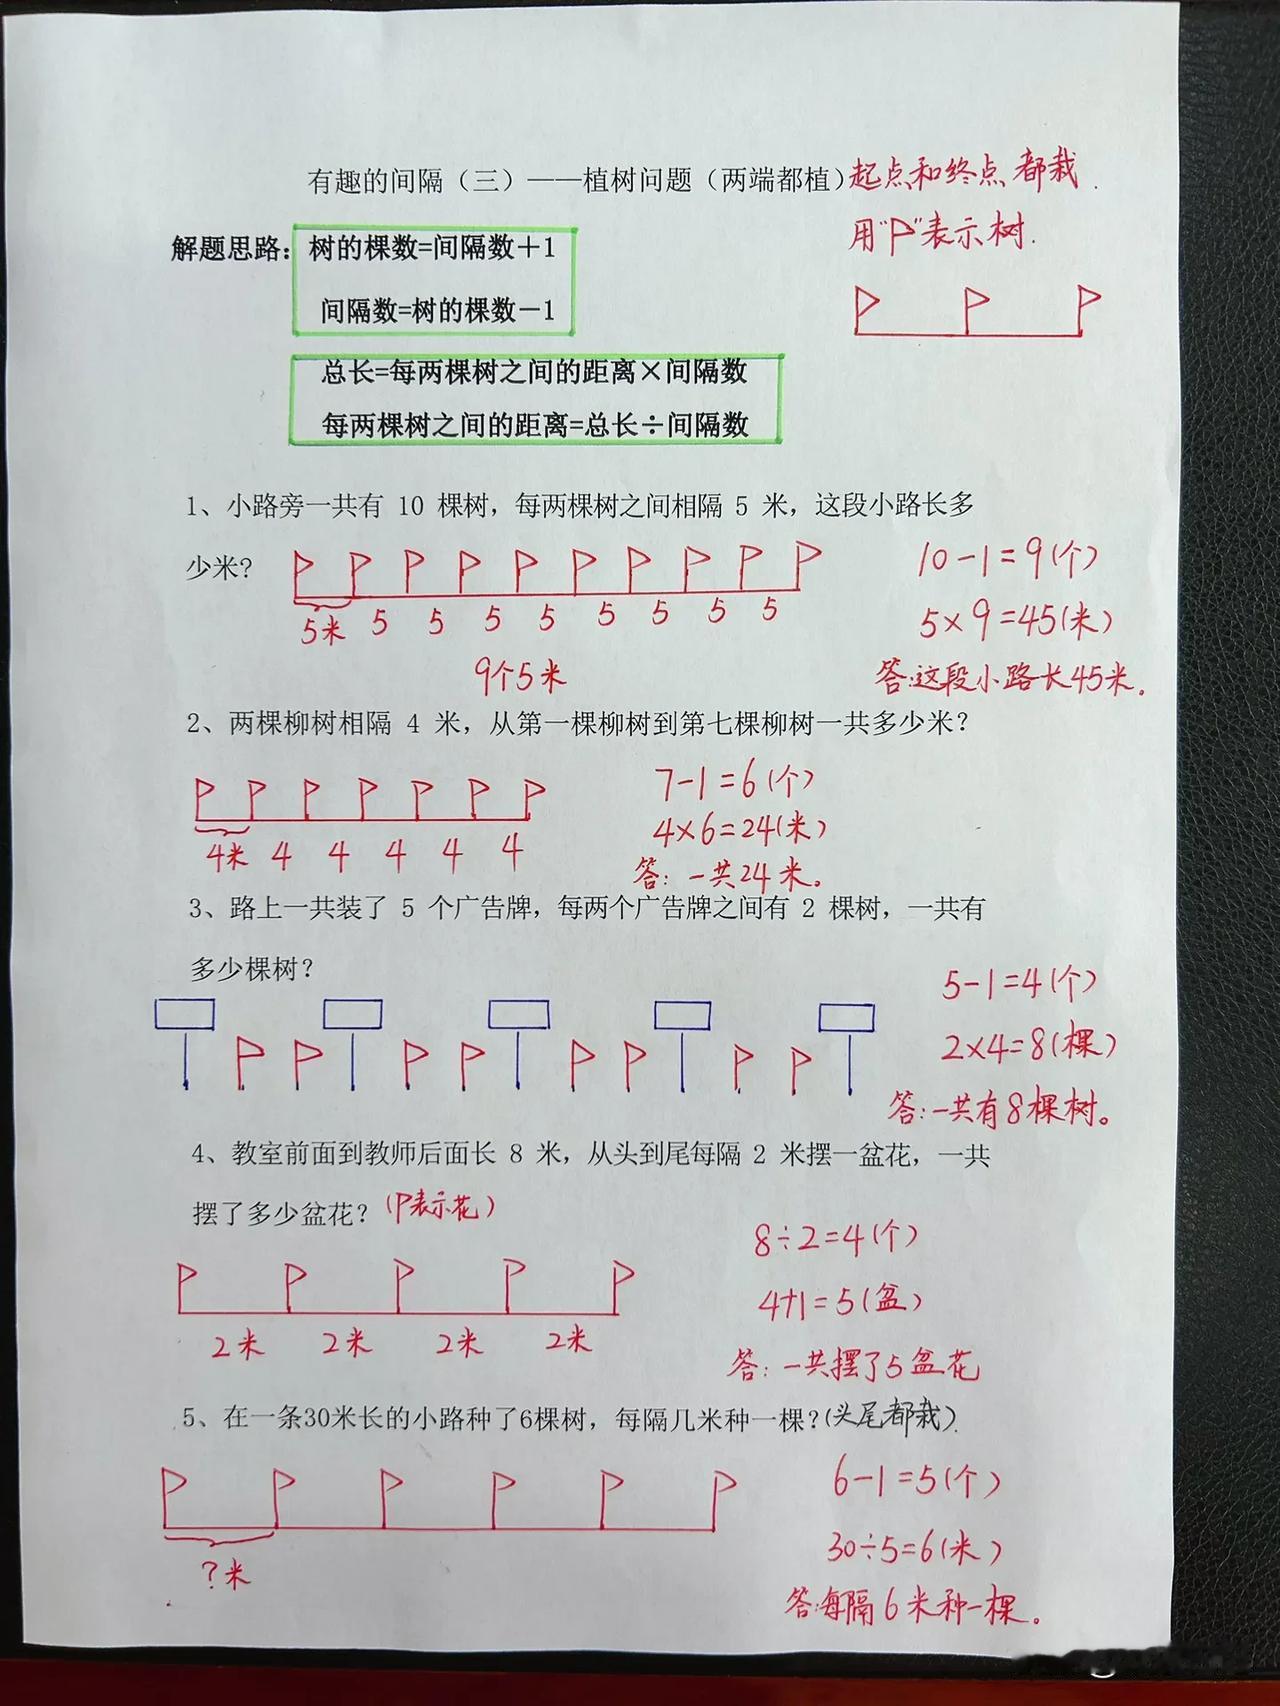 有趣的间隔（三）——植树问题（两端都植）起点和终点都栽.
用“P”表示树.
解题思路：树的棵数=间隔数＋1
间隔数=树的棵数－1
总长=每两棵树之间的距离×间隔数
每两棵树之间的距离=总长÷间隔数
1、小路旁一共有 10 棵树，每两棵树之间相隔 5 米，这段小路长多
少米？
10-1=9(个)
5×9=45(米)
5米 5 5 5 5 5 5 5 5
9个5米
答:这段小路长45米.
2、两棵柳树相隔 4 米，从第一棵柳树到第七棵柳树一共多少米？
7-1=6(个)
4×6=24(米)
4米 4 4 4 4 4
答: 一共24米。
3、路上一共装了 5 个广告牌，每两个广告牌之间有 2 棵树，一共有
多少棵树？
5-1=4(个)
2×4=8(棵)
答:一共有8棵树。
4、教室前面到教师后面长 8 米，从头到尾每隔 2 米摆一盆花，一共
摆了多少盆花？(P表示花)
8÷2=4(个)
4+1=5(盆)
2米 2米 2米 2米
答: 一共摆了5盆花
5、在一条30米长的小路种了6棵树，每隔几米种一棵？(头尾都栽).
6-1=5(个)
30÷5=6(米)
?米
答:每隔6米种一棵。